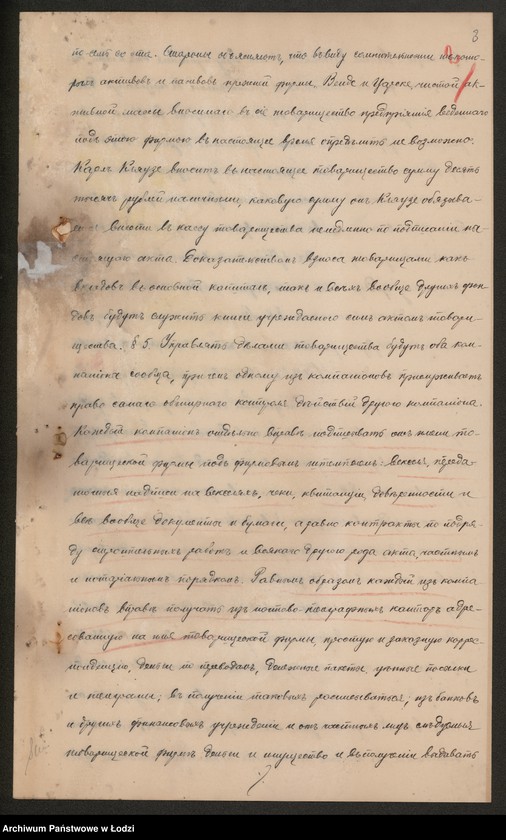 3
по сему акта. Стороны объясняютъ, что въ виду сомнительности некото-
рыхъ активовъ и пасивовъ прежней фирмы Вейде и Царске, чистой ак-
тивной массы вносимаго въ сіе товарищество предпріятія веденнаго
подъ этою фирмою въ настоящее время опредѣлить не возможно.
Карлъ Краузе вноситъ въ настоящее товарищество сумму десять
тысячъ рублей наличными, каковую сумму онъ Краузе обязыва-
ется внести въ кассу товарищества немедленно по подписаніи на-
стоящаго акта. Доказательствомъ взноса товарищами какъ
вкладовъ въ основной капиталъ, такъ и всѣхъ вообще другихъ фон-
довъ будутъ служить книги учрежденнаго симъ актомъ товари-
щества. § 5. Управлять дѣлами товарищества будутъ оба ком-
паніона сообща, при чемъ одному изъ компаніоновъ принадлежитъ
право самаго обширнаго контроля дѣйствій другого компаніона.
Каждый компаніонъ отдѣльно вправѣ подписывать отъ имени то-
варищеской фирмы подъ фирмовымъ штемпелемъ: векселя, переда-
точныя надписи на векселяхъ, чеки, квитанціи, довѣренности и
всѣ вообще документы и бумаги, а равно контракты по подря-
ду строительныхъ работъ и всякаго другого рода акты, частнымъ
и нотаріальнымъ порядкомъ. Равнымъ образомъ каждый изъ компа-
ніоновъ вправѣ получать изъ почтово-телеграфныхъ конторъ адре-
сованную на имя товарищеской фирмы, простую и заказную коррес-
понденцію, деньги по переводамъ, денежные пакеты, цѣнные посылки
и телеграммы; въ полученіи таковыхъ расписываться; изъ банковъ
и другихъ финансовыхъ учрежденій и отъ частныхъ лицъ слѣдуемыя
товарищеской фирмѣ деньги и имущество и въ полученіи выдавать
Archiwum Państwowe w Łodzi